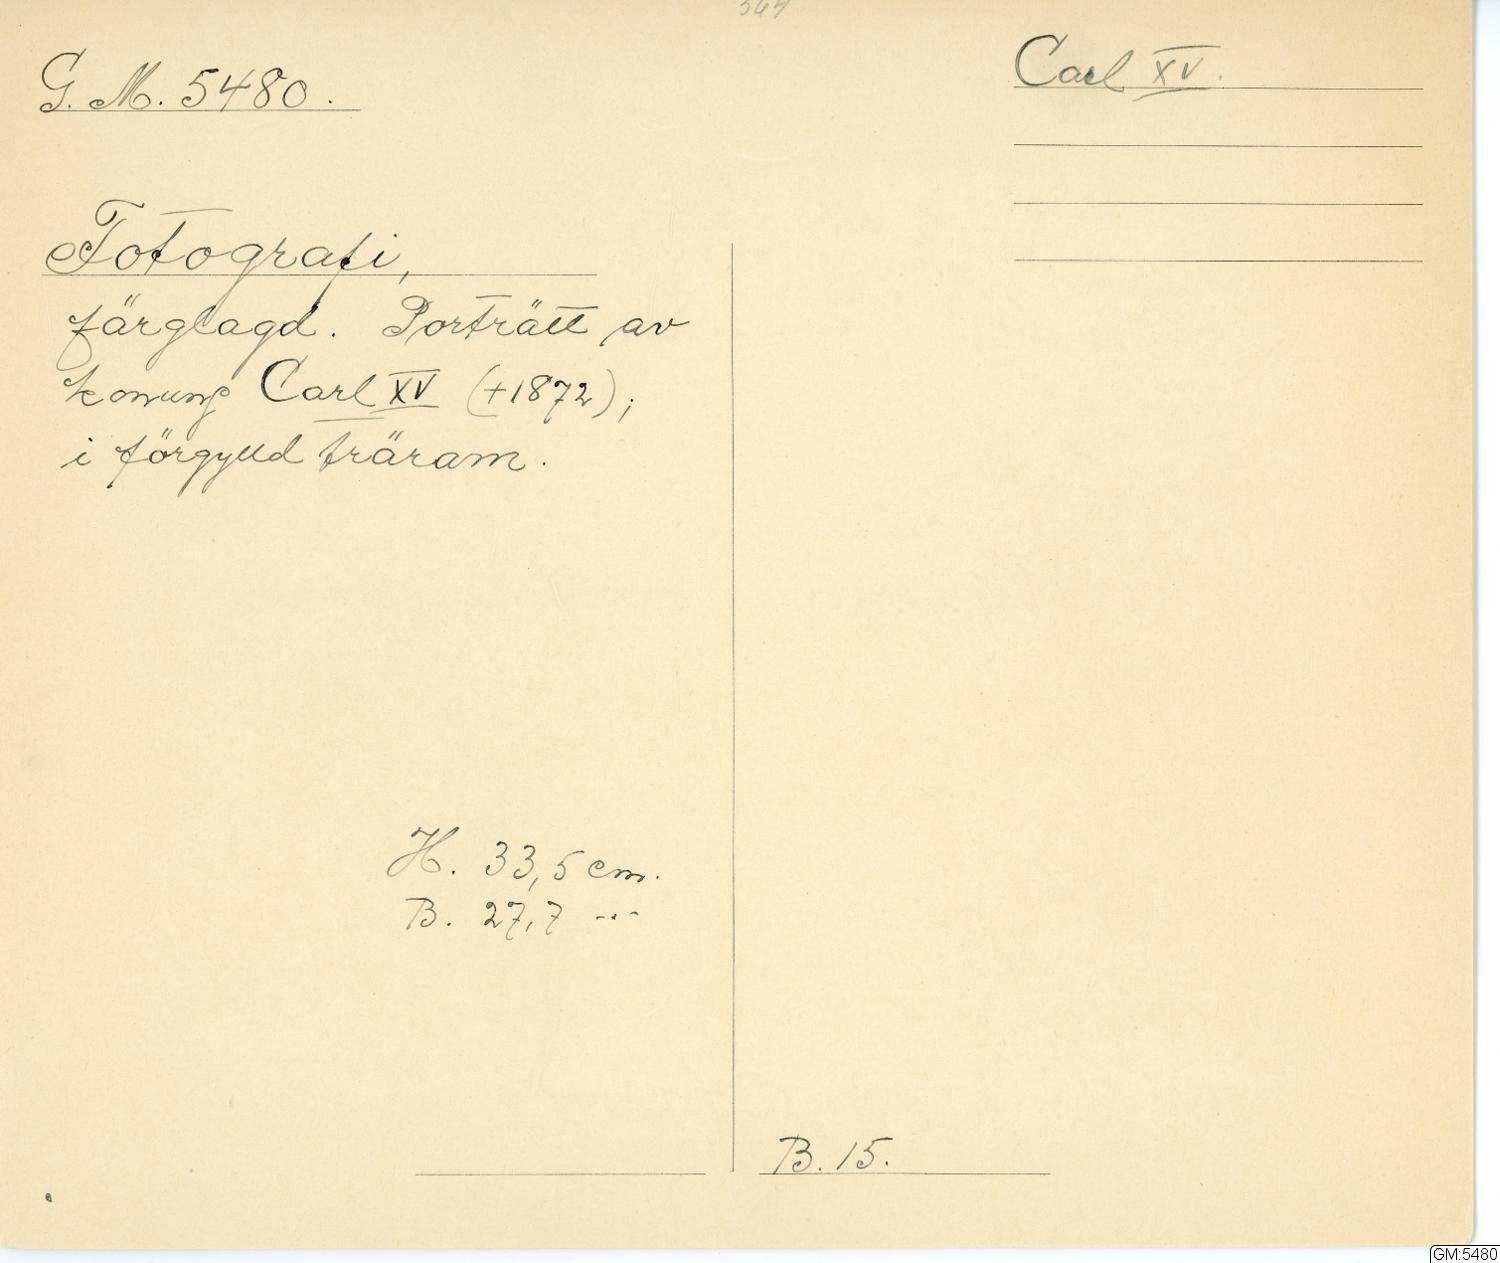 G. M. 5480.
Carl XV.
Fotografi,
färglagd. Porträtt av
konung Carl XV (+1872);
i förgylld träram.
H. 33,5 cm.
B. 27,7 -"-
B. 15.
GM:5480